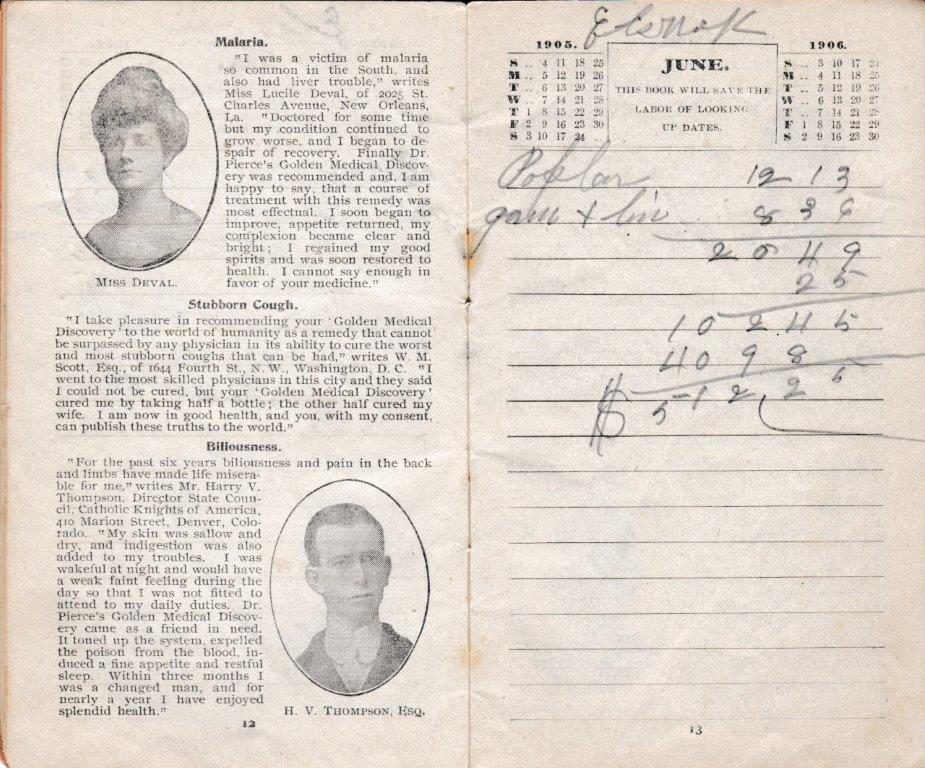 Malaria.
"I was a victim of malaria
so common in the South, and
also had liver trouble," writes
Miss Lucile Deval, of 2025 St.
Charles Avenue, New Orleans,
La. "Doctored for some time
but my condition continued to
grow worse, and I began to de-
spair of recovery. Finally Dr.
Pierce's Golden Medical Discov-
ery was recommended and, I am
happy to say, that a course of
treatment with this remedy was
most effectual. I soon began to
improve, appetite returned, my
complexion became clear and
bright; I regained my good
spirits and was soon restored to
health. I cannot say enough in
favor of your medicine."
MISS DEVAL.
Stubborn Cough.
"I take pleasure in recommending your 'Golden Medical
Discovery' to the world of humanity as a remedy that cannot
be surpassed by any physician in its ability to cure the worst
and most stubborn coughs that can be had," writes W. M.
Scott, Esq., of 1644 Fourth St., N. W., Washington, D. C. "I
went to the most skilled physicians in this city and they said
I could not be cured, but your 'Golden Medical Discovery'
cured me by taking half a bottle; the other half cured my
wife. I am now in good health, and you, with my consent,
can publish these truths to the world."
Biliousness.
"For the past six years biliousness and pain in the back
and limbs have made life misera-
ble for me," writes Mr. Harry V.
Thompson, Director State Coun-
cil, Catholic Knights of America,
410 Marion Street, Denver, Colo-
rado. "My skin was sallow and
dry, and indigestion was also
added to my troubles. I was
wakeful at night and would have
a weak faint feeling during the
day so that I was not fitted to
attend to my daily duties. Dr.
Pierce's Golden Medical Discov-
ery came as a friend in need.
It toned up the system, expelled
the poison from the blood, in-
duced a fine appetite and restful
sleep. Within three months I
was a changed man, and for
nearly a year I have enjoyed
splendid health."
H. V. THOMPSON, ESQ.
12
1905.
S .. 4 11 18 25
M .. 5 12 19 26
T .. 6 13 20 27
W .. 7 14 21 28
T 1 8 15 22 29
F 2 9 16 23 30
S 3 10 17 24 ..
JUNE.
THIS BOOK WILL SAVE THE
LABOR OF LOOKING
UP DATES.
1906.
S .. 3 10 17 24
M .. 4 11 18 25
T .. 5 12 19 26
W .. 6 13 20 27
T .. 7 14 21 28
F 1 8 15 22 29
S 2 9 16 23 30
Poplar 1213
gum + lin 836
2049
25
10245
4098
$ 512 25
13